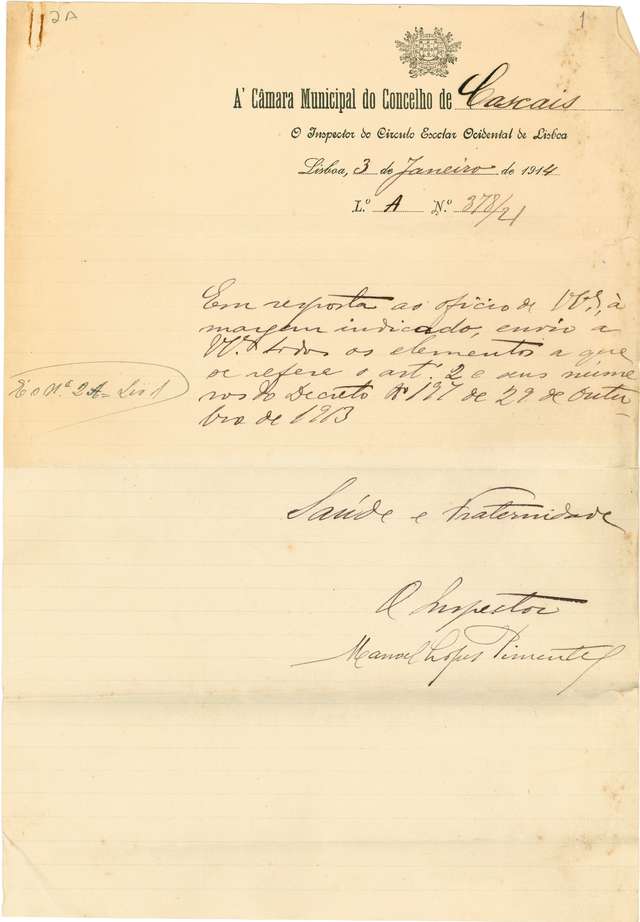 2A
1
A' Câmara Municipal do Concelho de Cascais
O Inspector do Circulo Escolar Ocidental de Lisboa
Lisboa, 3 de Janeiro de 1914
L.º A N.º 378/21
Em resposta ao oficio de V.ª, à
margem indicado, envio a
V.ª todos os elementos a que
se refere o art.º 2 e seus nume
ros do Decreto Nº 197 de 29 de Outu-
bro de 1913
É o N.º 2A = Liv 1
Saúde e Fraternidade
O Inspector
Manoel Lopes Pimentel